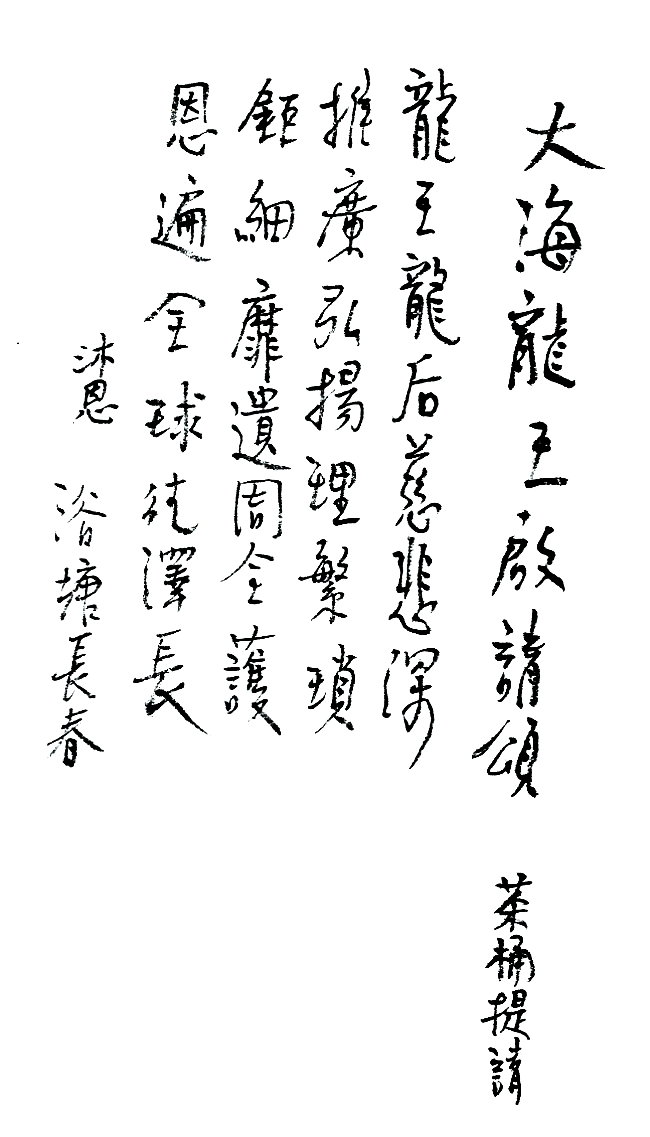 大海龍王啟請頌
茶桶提請
龍王龍后慈悲深
推廣弘揚理繁瑣
鉅細靡遺周全護
恩遍全球徒澤長
沐恩
浴塘長春